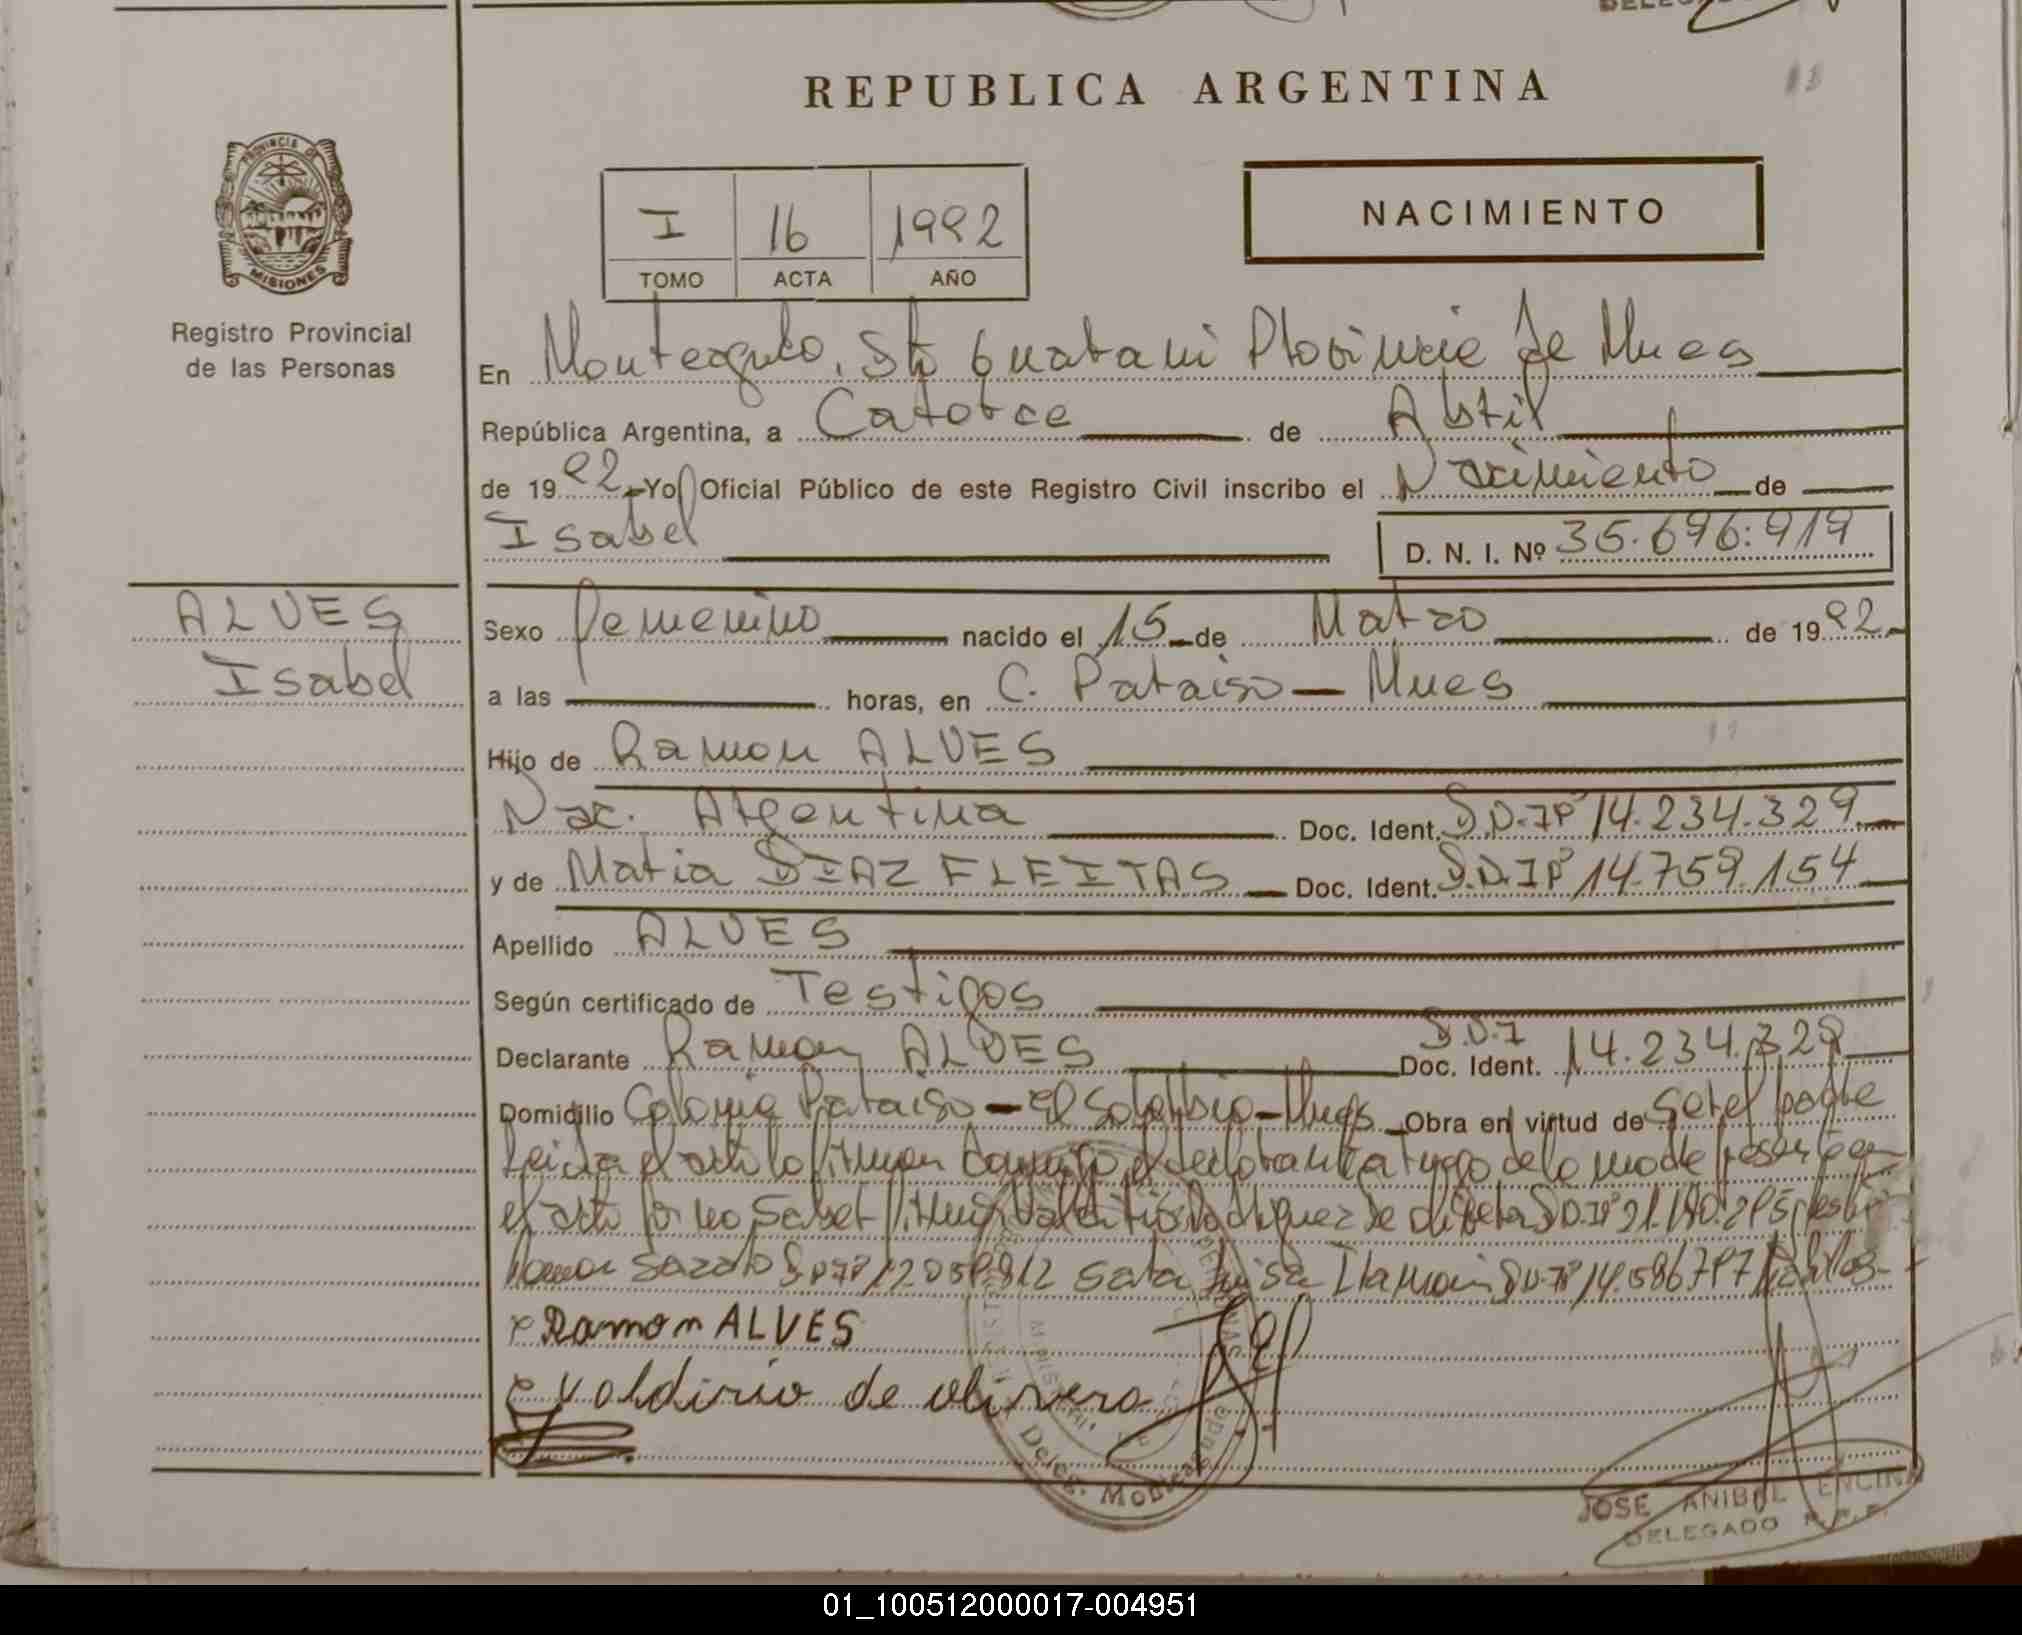 REPUBLICA ARGENTINA
PROVINCIA DE
MISIONES
Registro Provincial
de las Personas
I 16 1992
TOMO ACTA AÑO
NACIMIENTO
En Monteagudo, Dto Guarani Provincia de Mnes
República Argentina, a Catorce de Abril
de 19 92 Yo Oficial Público de este Registro Civil inscribo el Nacimiento de
Isabel D. N. I. Nº 35.696.919
ALVES
Isabel
Sexo femenino nacido el 15 de Marzo de 19 92
a las horas, en C. Paraiso - Mnes
Hijo de Ramon ALVES
Nac. Argentina Doc. Ident. 14.234.329
y de Maria DIAZ FLEITAS Doc. Ident. 14.759.154
Apellido ALVES
Según certificado de Testigos
Declarante Ramon ALVES Doc. Ident. 14.234.329
Domicilio Colonia Paraiso - El Soberbio - Mnes Obra en virtud de ser el padre
Leida el acta lo firman conmigo el declarante a ruego de la madre presente en
el acto por no saber firmar
Sara Luisa
Ramon ALVES
valdirio de olivera
Deleg.
JOSE ANIBAL ENCINA
DELEGADO R.P.P.
01_100512000017-004951